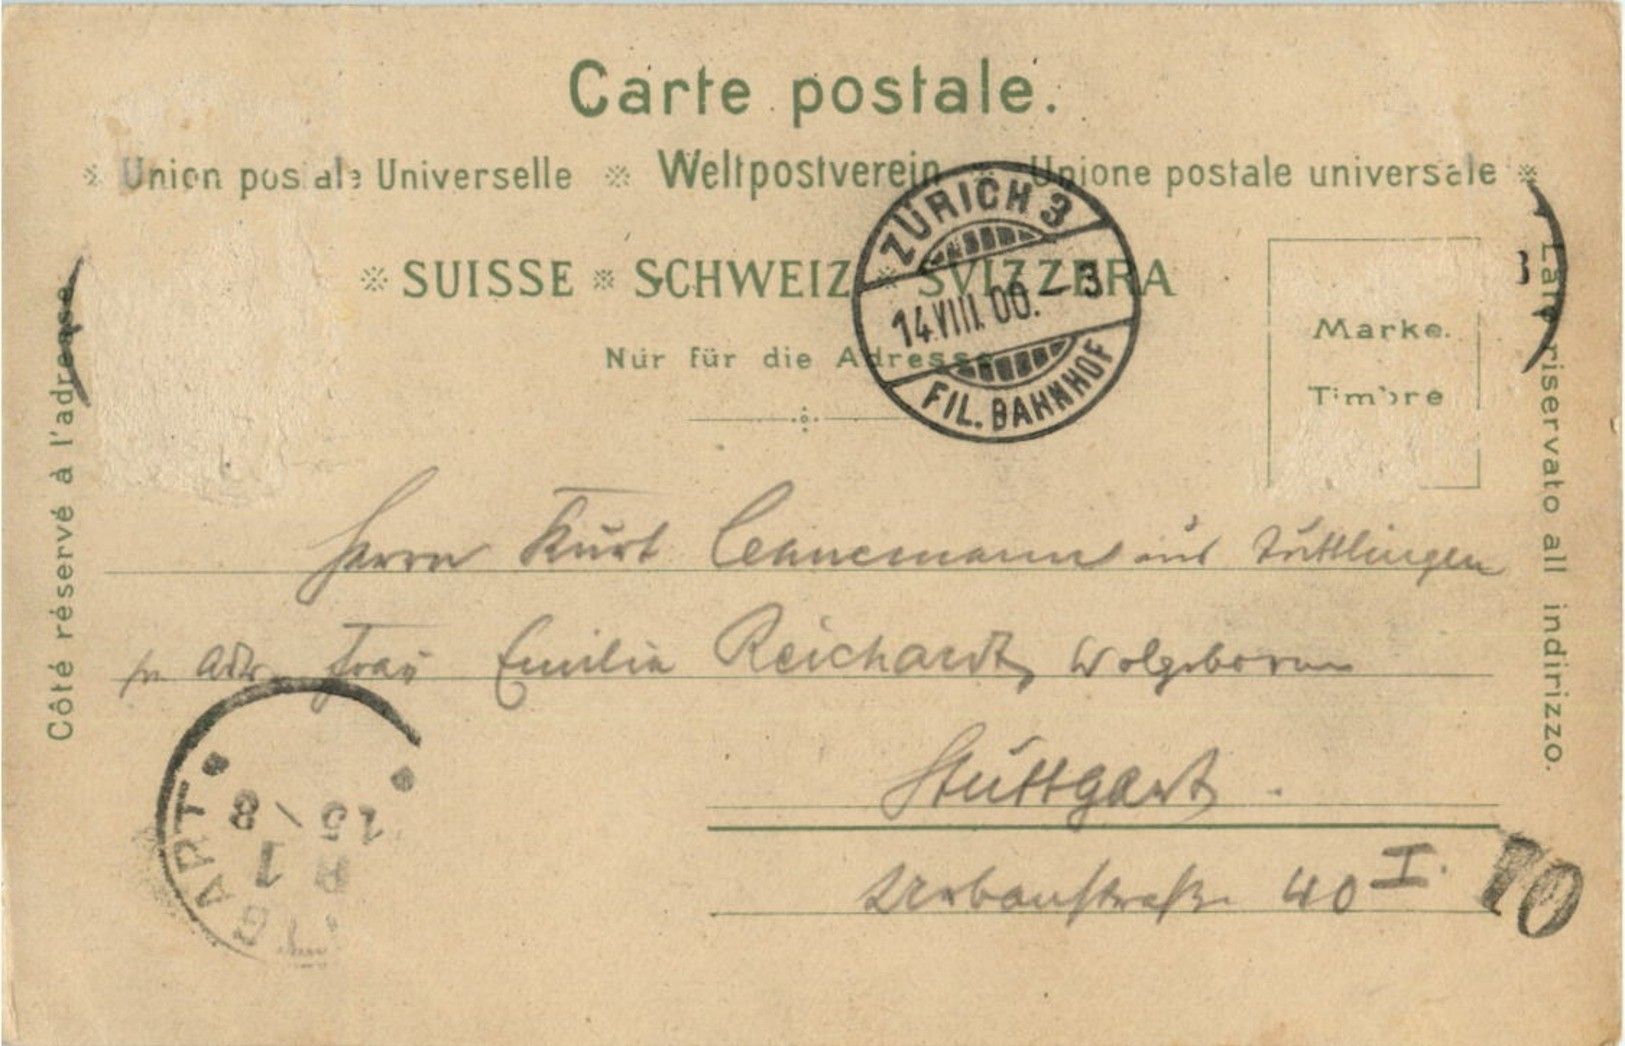 Carte postale.
Union postale Universelle Weltpostverein Unione postale universale
SUISSE SCHWEIZ SVIZZERA
Nur für die Adresse
ZÜRICH 3
14.VIII.00.–3
FIL. BAHNHOF
Marke.
Timbre
Côté réservé à l'adresse
Lato riservato all indirizzo.
Herrn Kurt aus Tuttlingen
Adr. Frau Emilie Reichardt, Wolgeboren
Stuttgart.
Urbanstraße 40 I.
GART
15/8
1
10